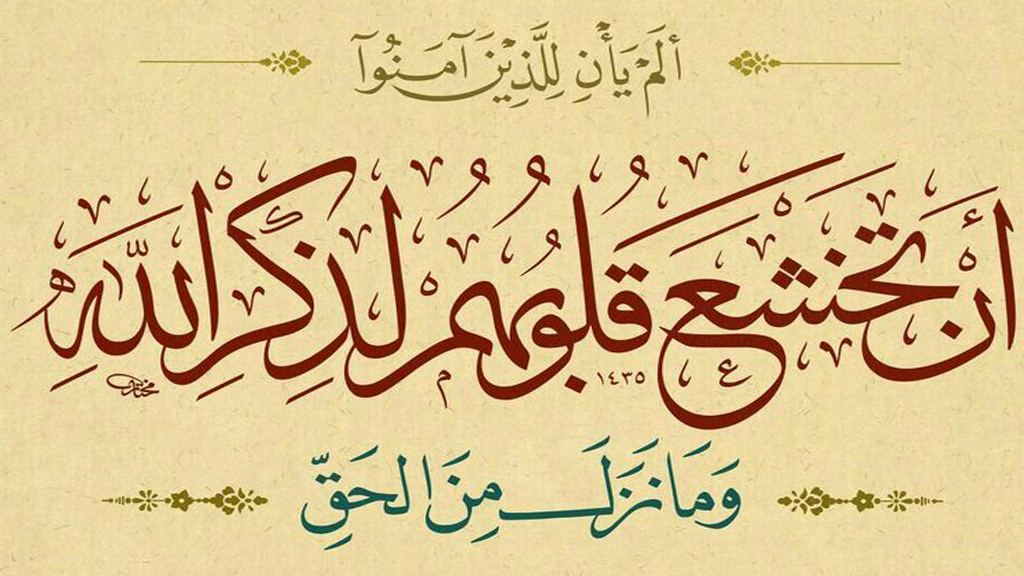 أَلَمْ يَأْنِ لِلَّذِينَ آمَنُوٓا
أَن تَخْشَعَ قُلُوبُهُمْ لِذِكْرِ اللَّهِ
١٤٣٥
وَمَا نَزَلَ مِنَ الحَقِّ